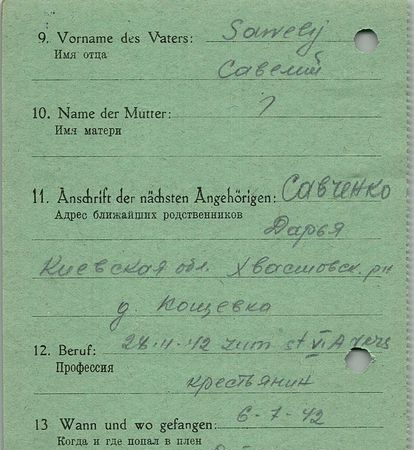 9. Vorname des Vaters: Sawelij
Имя отца Савелий
10. Name der Mutter: ?
Имя матери
11. Anschrift der nächsten Angehörigen: Савченко
Адрес ближайших родственников Дарья
Киевская обл. Хвастовск. рн
д. Кощевка
12. Beruf: 28.4.42 zum st VI A vers
Профессия крестьянин
13 Wann und wo gefangen: 6-7-42
Когда и где попал в плен